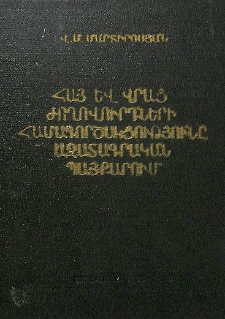 Վ. Մ. ՄԱՐՏԻՐՈՍՅԱՆ
ՀԱՅ ԵՎ ՎՐԱՑ
ԺՈՂՈՎՈՒՐԴՆԵՐԻ
ՀԱՄԱԳՈՐԾԱԿՑՈՒԹՅՈՒՆԸ
ԱԶԱՏԱԳՐԱԿԱՆ
ՊԱՅՔԱՐՈՒՄ